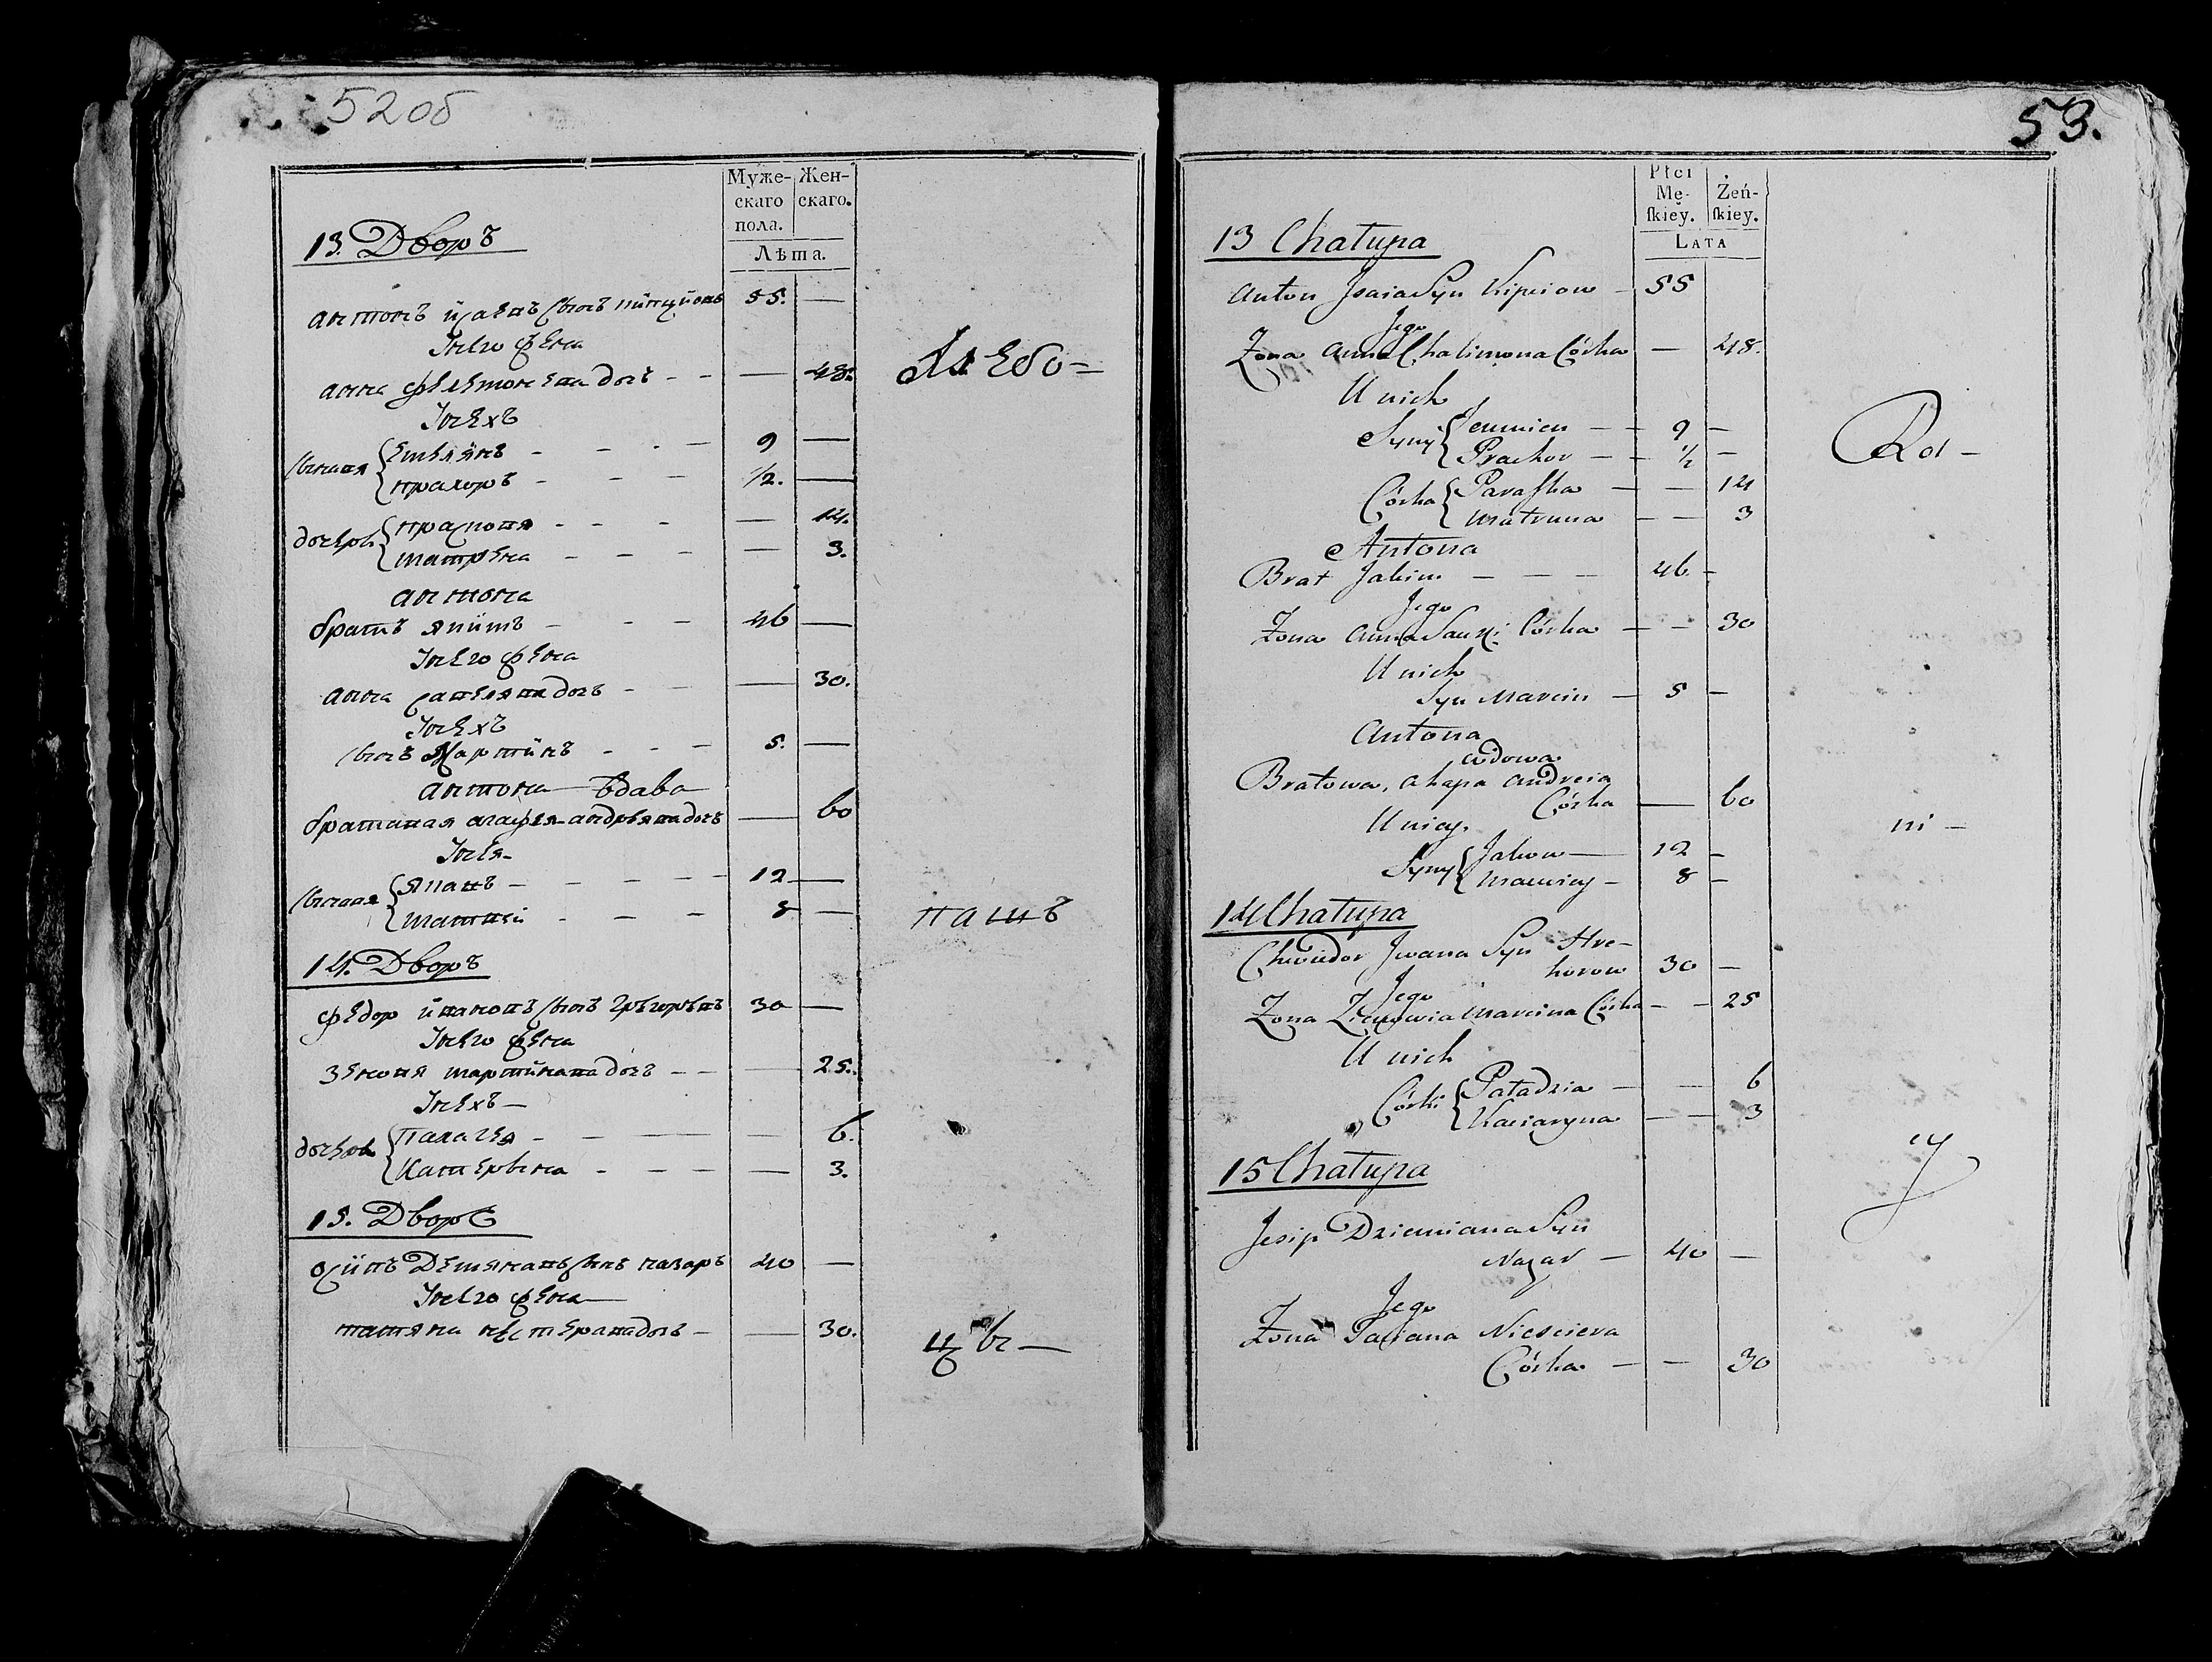 52об
Муже- Жен-
скаго скаго.
пола.
Лѣта.
13. Дворъ
антонъ исаевъ сынъ кипционъ 55. —
Унего жена
анна филемонева дочь - - — 48.
Унехъ
сыновя { Емелянъ - - - 9 —
прахоръ - - - 1/2. —
дочери { прасковя - - - — 14.
матрена - - - — 3.
антона
братъ якимъ - - - 46 —
Унего жена
анна савеляна дочь - - — 30.
Унехъ
сынъ Мартинъ - - - 5. —
антона вдава
братавая агафея андреява дочь — 60
Унея
сыновя { Якавъ - - - - 12 —
матвей - - - 8 —
14. Дворъ
федор ивановъ сынъ григоревъ 30 —
Унего жена
зеновя мартинава дочь - - — 25.
Унехъ —
дочери { палагея - — — — 6.
Катерина - - - — 3.
15. Дворъ
осипъ Демяновъ сынъ назаръ 40 —
Унего жена
татяна нестерава дочь - — 30.
Глебо=
вашъ
53.
Płci
Mę- Żeń-
ſkiey. ſkiey.
LATA
13 Chałupa
Anton Jsaia Syn Kipciow - 55
Jego
Zona Anna Chalimona Córka - 48.
U nich
Syny { Jemmien - - 9 -
Prachor - - 1/2 -
Córka { Paraſka - - 14
Matruna - - 3
Antona
Brat Jakim - - - 46 -
Jego
Zona Anna Córka - - 30
U nich
Syn Marcin - 5 -
Antona
wdowa
Bratowa, Ahapa Andreia
Córka — 60
U niey.
Syny { Jakow — 12 -
Maciey - 8 -
14 Chałupa
Chwiedor Jwana Syn Hre-
horow 30 -
Jego
Zona Zienowia Marcina Córka - - 25
U nich
Córki { Paładzia - — 6
Kaciaryna — — 3
15 Chałupa
Jesip Dziemiana Syn
Nazar - 40 —
Jego
Zona Taciana Niesciera
Córka - - 30
ni -